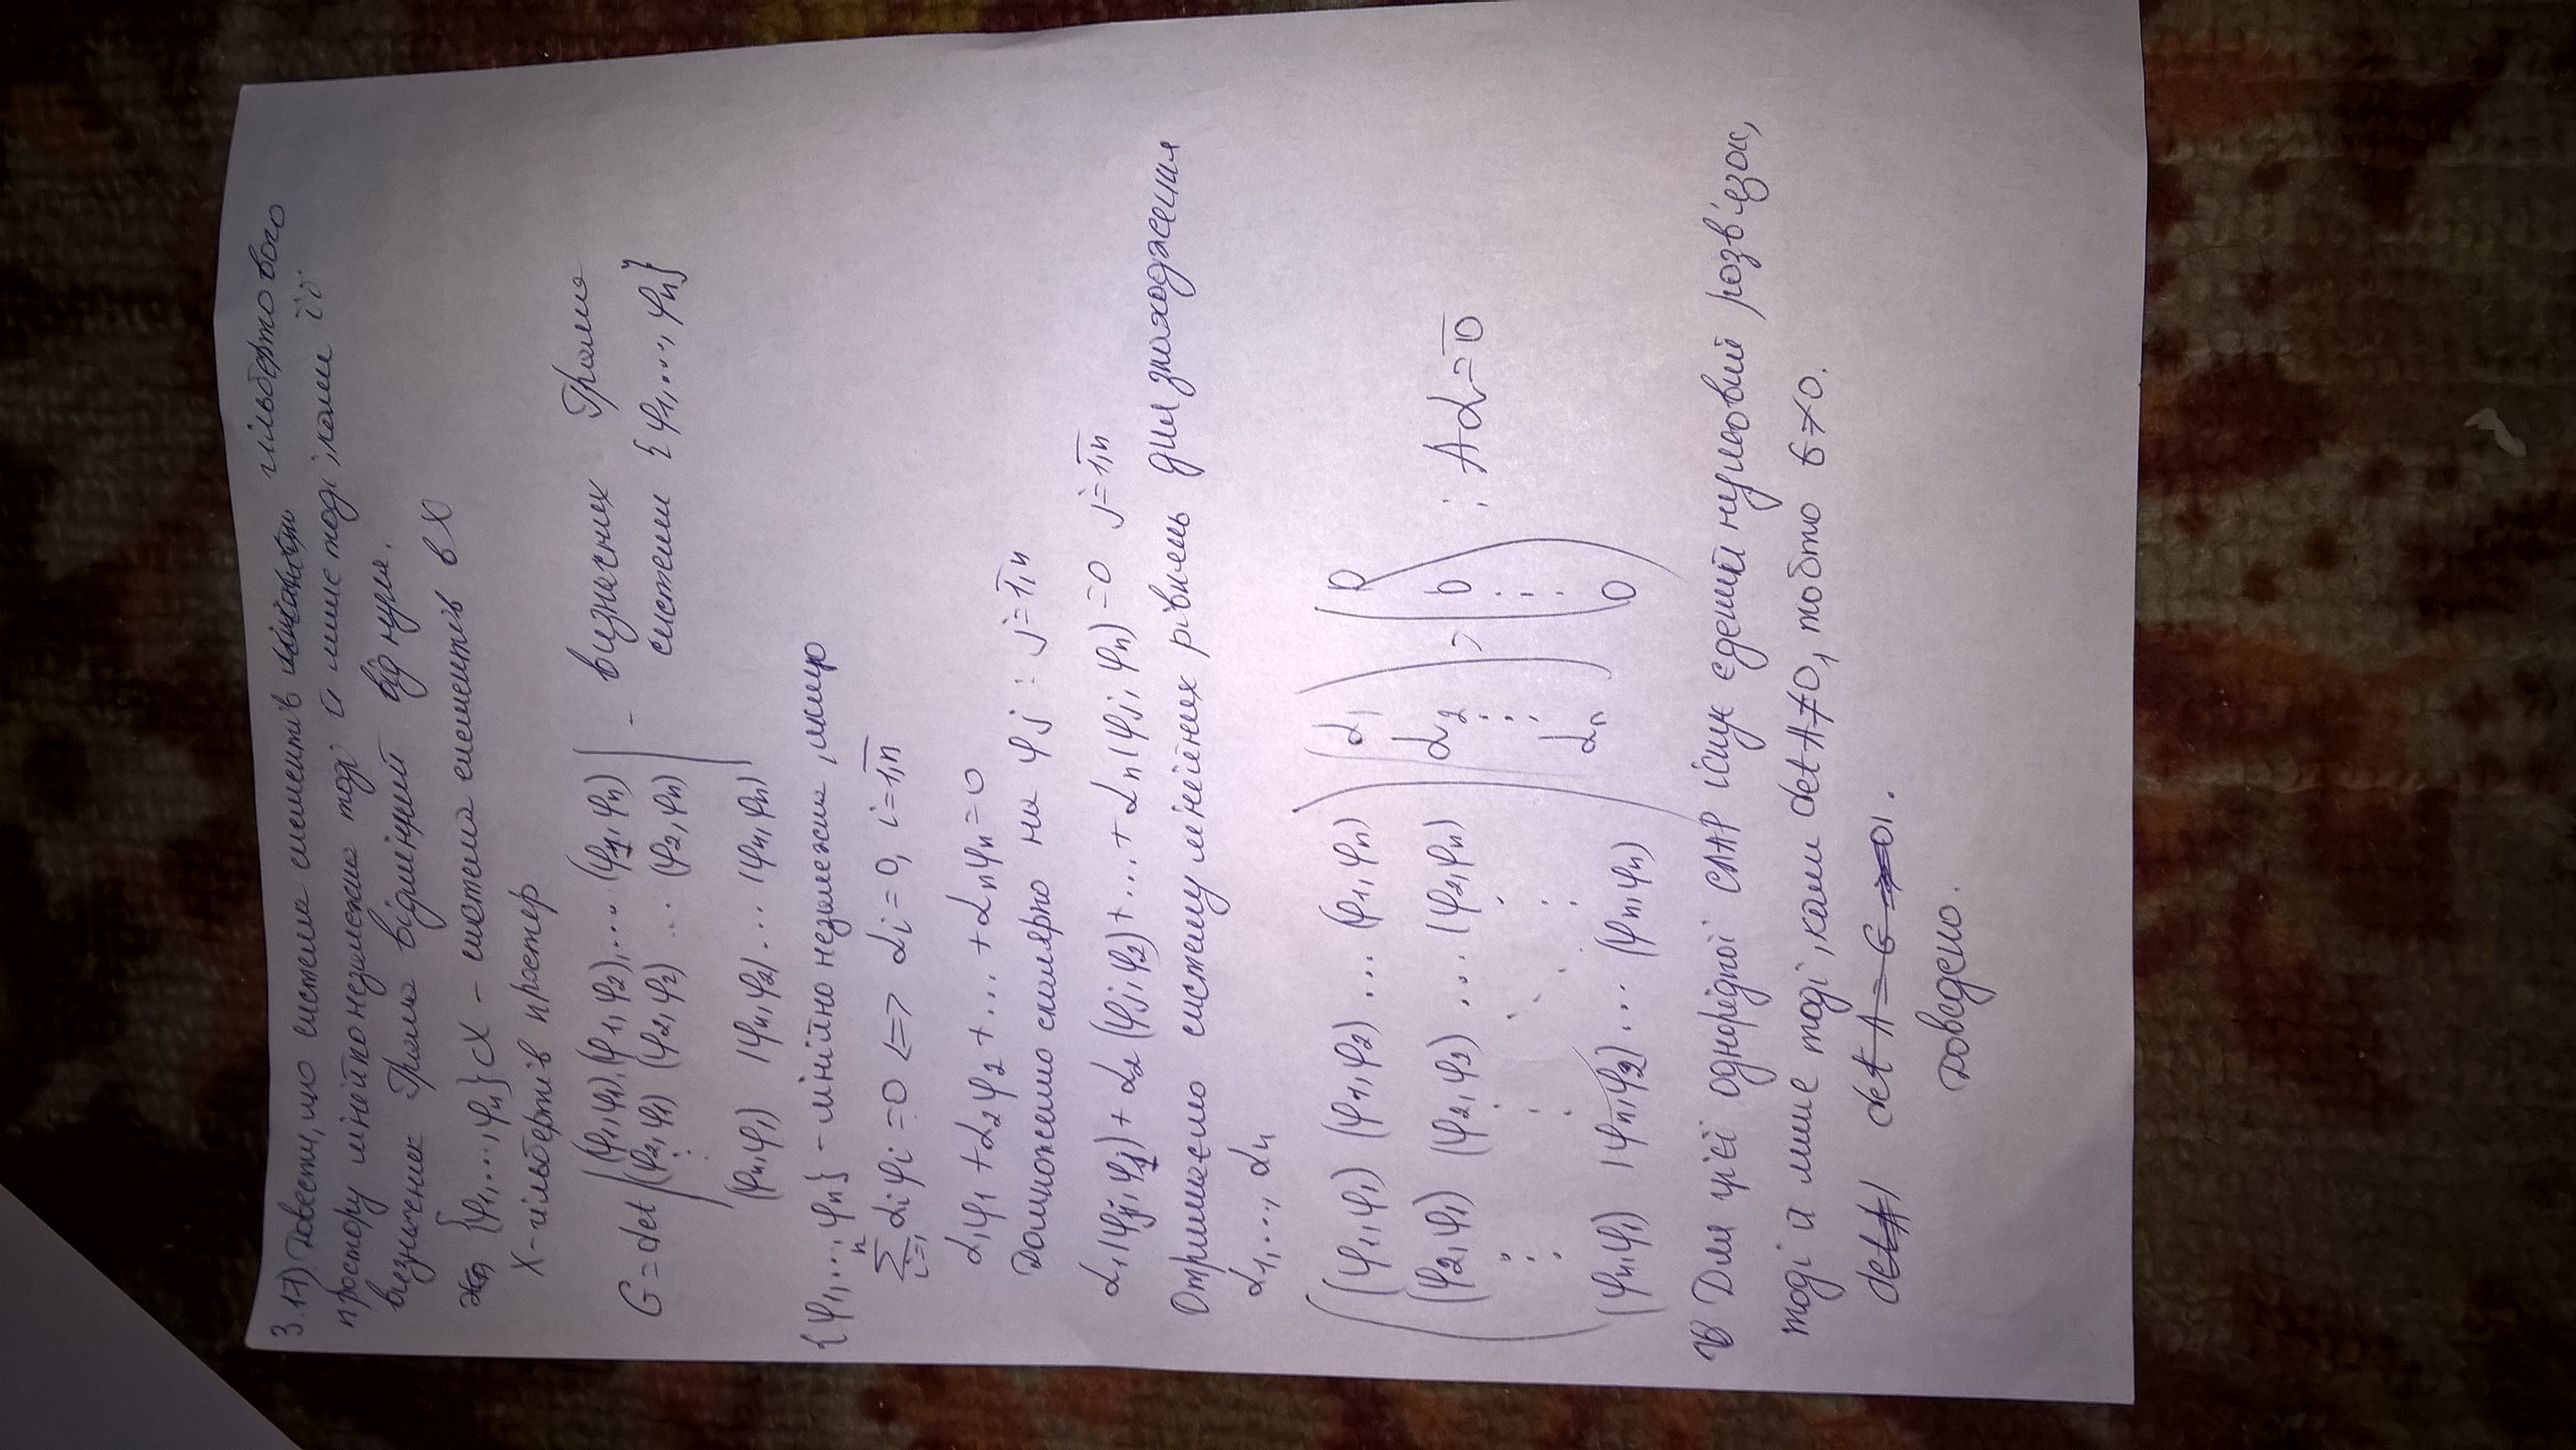 3.17) Довести, що система елементів гільбертового
простору лінійно незалежна тоді й лише тоді, коли її
визначник Грама відмінний від нуля.
{φ1,..., φn}⊂X – система елементів в X
X – гільбертів простір
G = det |(φ1,φ1), (φ1,φ2), ... (φ1,φn)| - визначник Грама
(φ2,φ1) (φ2,φ2) ... (φ2,φn) системи {φ1,..., φn}
⋮
(φn,φ1) (φn,φ2) ... (φn,φn)
{φ1,..., φn} – лінійно незалежна, якщо
n∑i=1 αiφi = 0 <=> αi = 0, i=1,n̅
α1φ1 + α2φ2 + ... + αnφn = 0
Домножимо скалярно на φj : j=1,n̅
α1(φj,φ1) + α2(φj,φ2) + ... + αn(φj,φn) = 0 j=1,n̅
Отримаємо систему лінійних рівнянь для знаходження
α1,..., αn
((φ1,φ1) (φ1,φ2) ... (φ1,φn)) (α1) (0)
(φ2,φ1) (φ2,φ2) ... (φ2,φn) α2 = 0 : Aα = 0̅
⋮ ⋮ ⋱ ⋮ ⋮ ⋮
(φn,φ1) (φn,φ2) ... (φn,φn) αn 0
Для цієї однорідної СЛАР існує єдений нульовий розв'язок,
тоді й лише тоді, коли det A≠0, тобто G≠0.
det A det A = G ≠ 0.
Доведено.